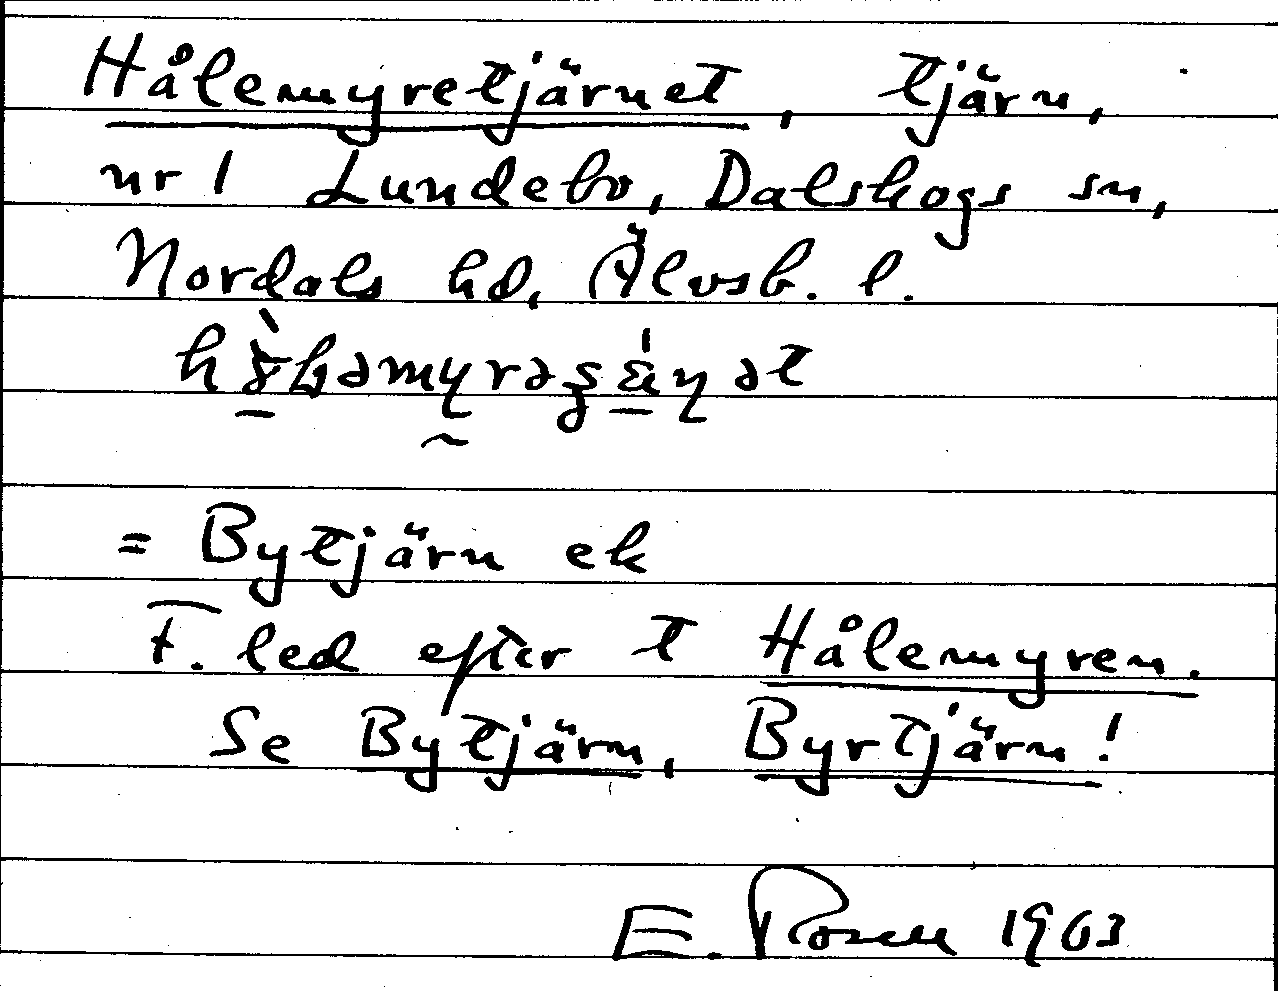 Hålemyretjärnet, tjärn,
nr 1 Lundebo, Dalskogs sn,
Nordals hd, Älvsb. l.
= Bytjärn ek
F. led efter t Hålemyren.
Se Bytjärn, Byrtjärn!
E. Rosell 1963